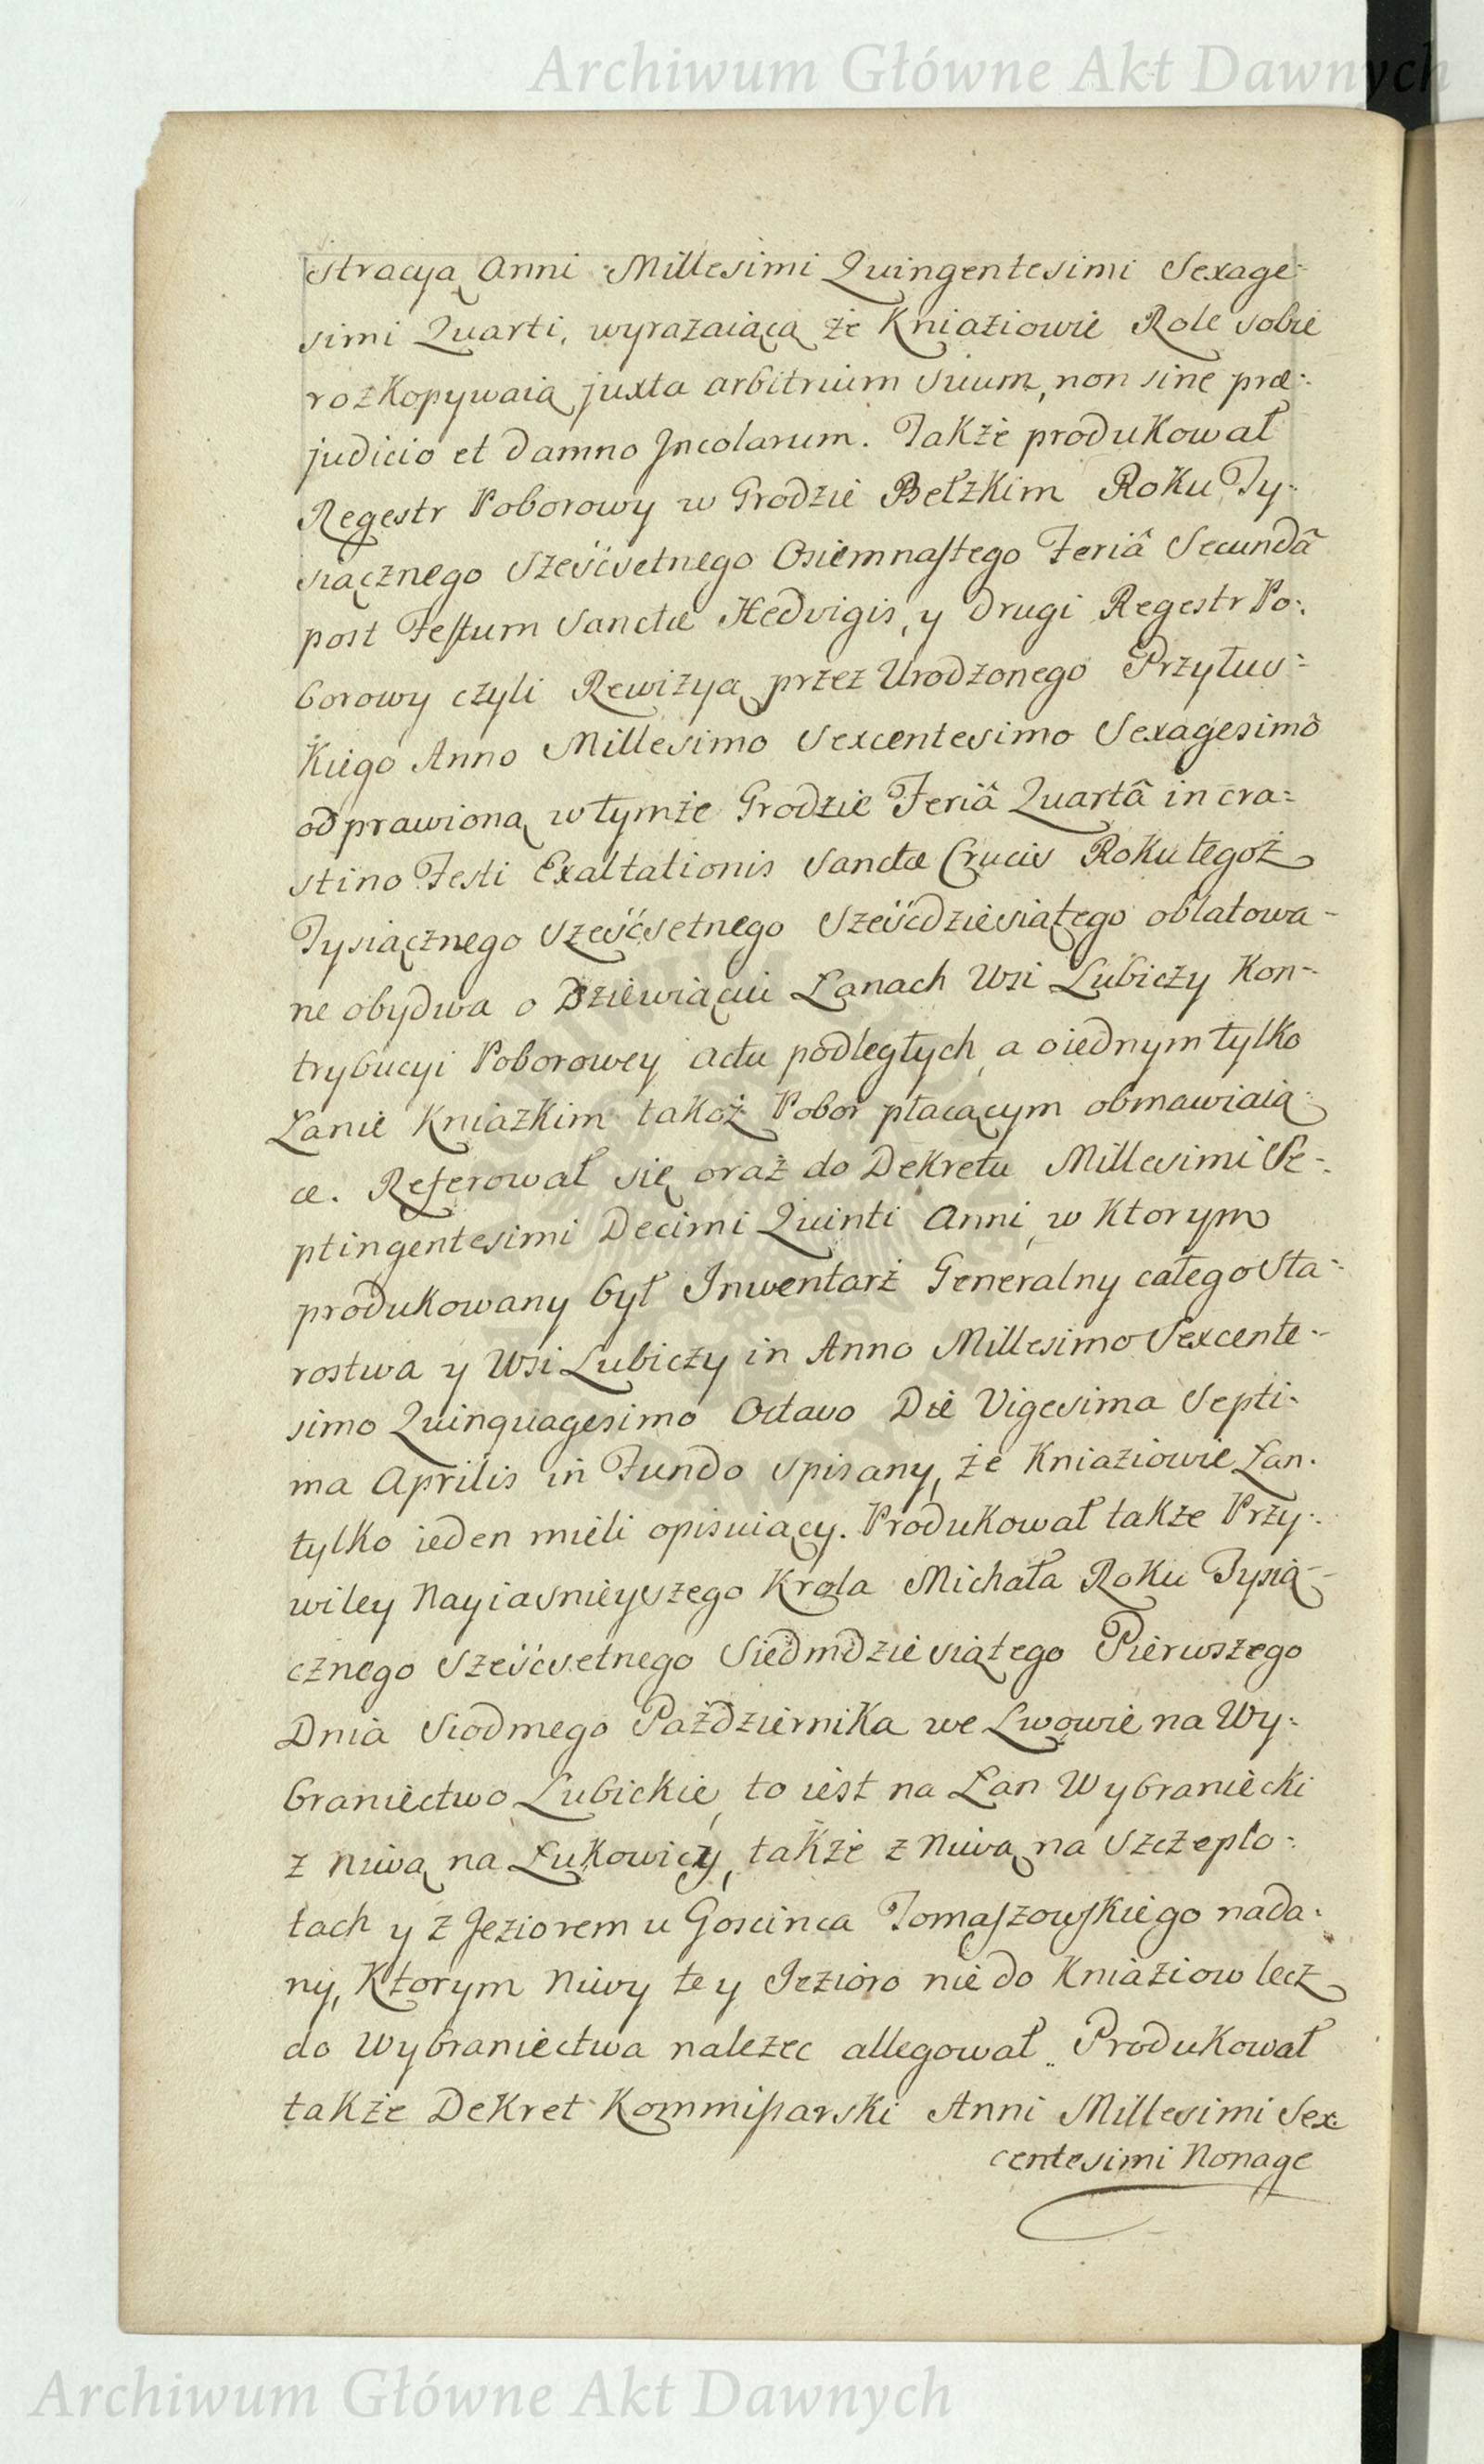 Archiwum Główne Akt Dawnych
stracyą Anni Millesimi Quingentesimi Sexage:
simi Quarti, wyrazaiącą że Kniaziowie Role sobie
rozkopywaią juxta arbitrium suum, non sine præ:
judicio et damno Incolarum. Także produkował
Regestr Poborowy w Grodzie Bełzkim Roku Ty:
siącznego Sześćsetnego Osiemnastego Feriâ Secundâ
post Festum Sanctæ Hedvigis, y drugi Regestr Po:
borowy czyli Rewizyą przez Urodzonego Przyłus:
kiego Anno Millesimo Sexcentesimo Sexagesimô
odprawioną w tymże Grodzie Feriâ Quartâ in cra:
stino Festi Exaltationis Sanctæ Crucis Roku tegoż
Tysiącznego Sześćsetnego Sześćdziesiątego oblatowa-
ne obydwa o Dziewiąciu Łanach Wsi Lubiczy Kon-
trybucyi Poborowey actu podległych, a o iednym tylko
Łanie Kniazkim takoż Pobor płacącym obmawiaią:
ce. Referował się oraz do Dekretu Millesimi Se-
ptingentesimi Decimi Quinti Anni, w ktorym
produkowany był Inwentarz Generalny całego Sta-
rostwa y Wsi Lubiczy in Anno Millesimo Sexcente-
simo Quinquagesimo Octavo Die Vigesima Septi:
ma Aprilis in Fundo spisany, że Kniaziowie Łan
tylko ieden mieli opisuiący. Produkował także Przy:
wiley Nayiasnieyszego Krola Michała Roku Tysią-
cznego Sześćsetnego Siedmdziesiątego Pierwszego
Dnia Siodmego Października we Lwowie na Wy:
braniectwo Lubickie, to iest na Łan Wybraniecki
z niwą na Łukowicy, także z Niwą na Szczepło:
tach y z Jeziorem u Goscinca Tomaszowskiego nada:
ny, Ktorym Niwy te y Jezioro nie do Kniaziow lecz
do Wybraniectwa nalezec allegował. Produkował
także Dekret Kommissarski Anni Millesimi Sex
centesimi Nonage
Archiwum Główne Akt Dawnych